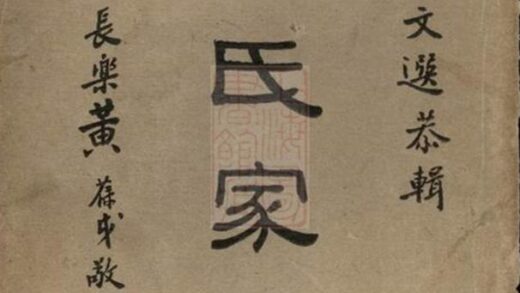 文選恭輯
氏家
長樂黃葆戉敬